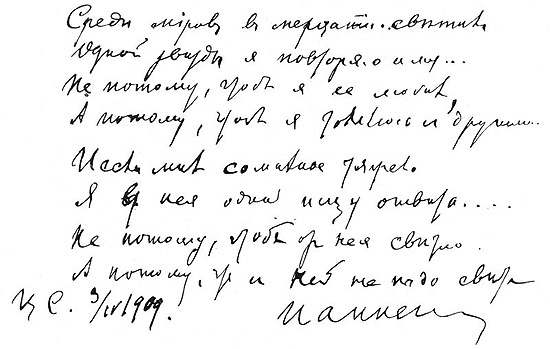 Среди міровъ въ мерцаніи свѣтилъ
Одной звѣзды я повторяю имя...
Не потому, чтобъ я ее любилъ,
А потому, что я томлюсь съ другими.
И если мнѣ сомнѣнье тяжело
Я у нея одной ищу отвѣта....
Не потому, чтобъ отъ нея свѣтло.
А потому, что съ ней не надо свѣта
Ц С. 3/IV 1909. И Анненскій